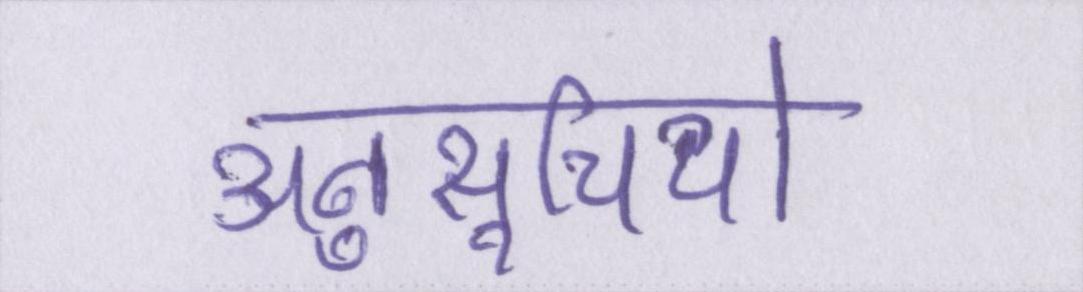 अनुसूचियो